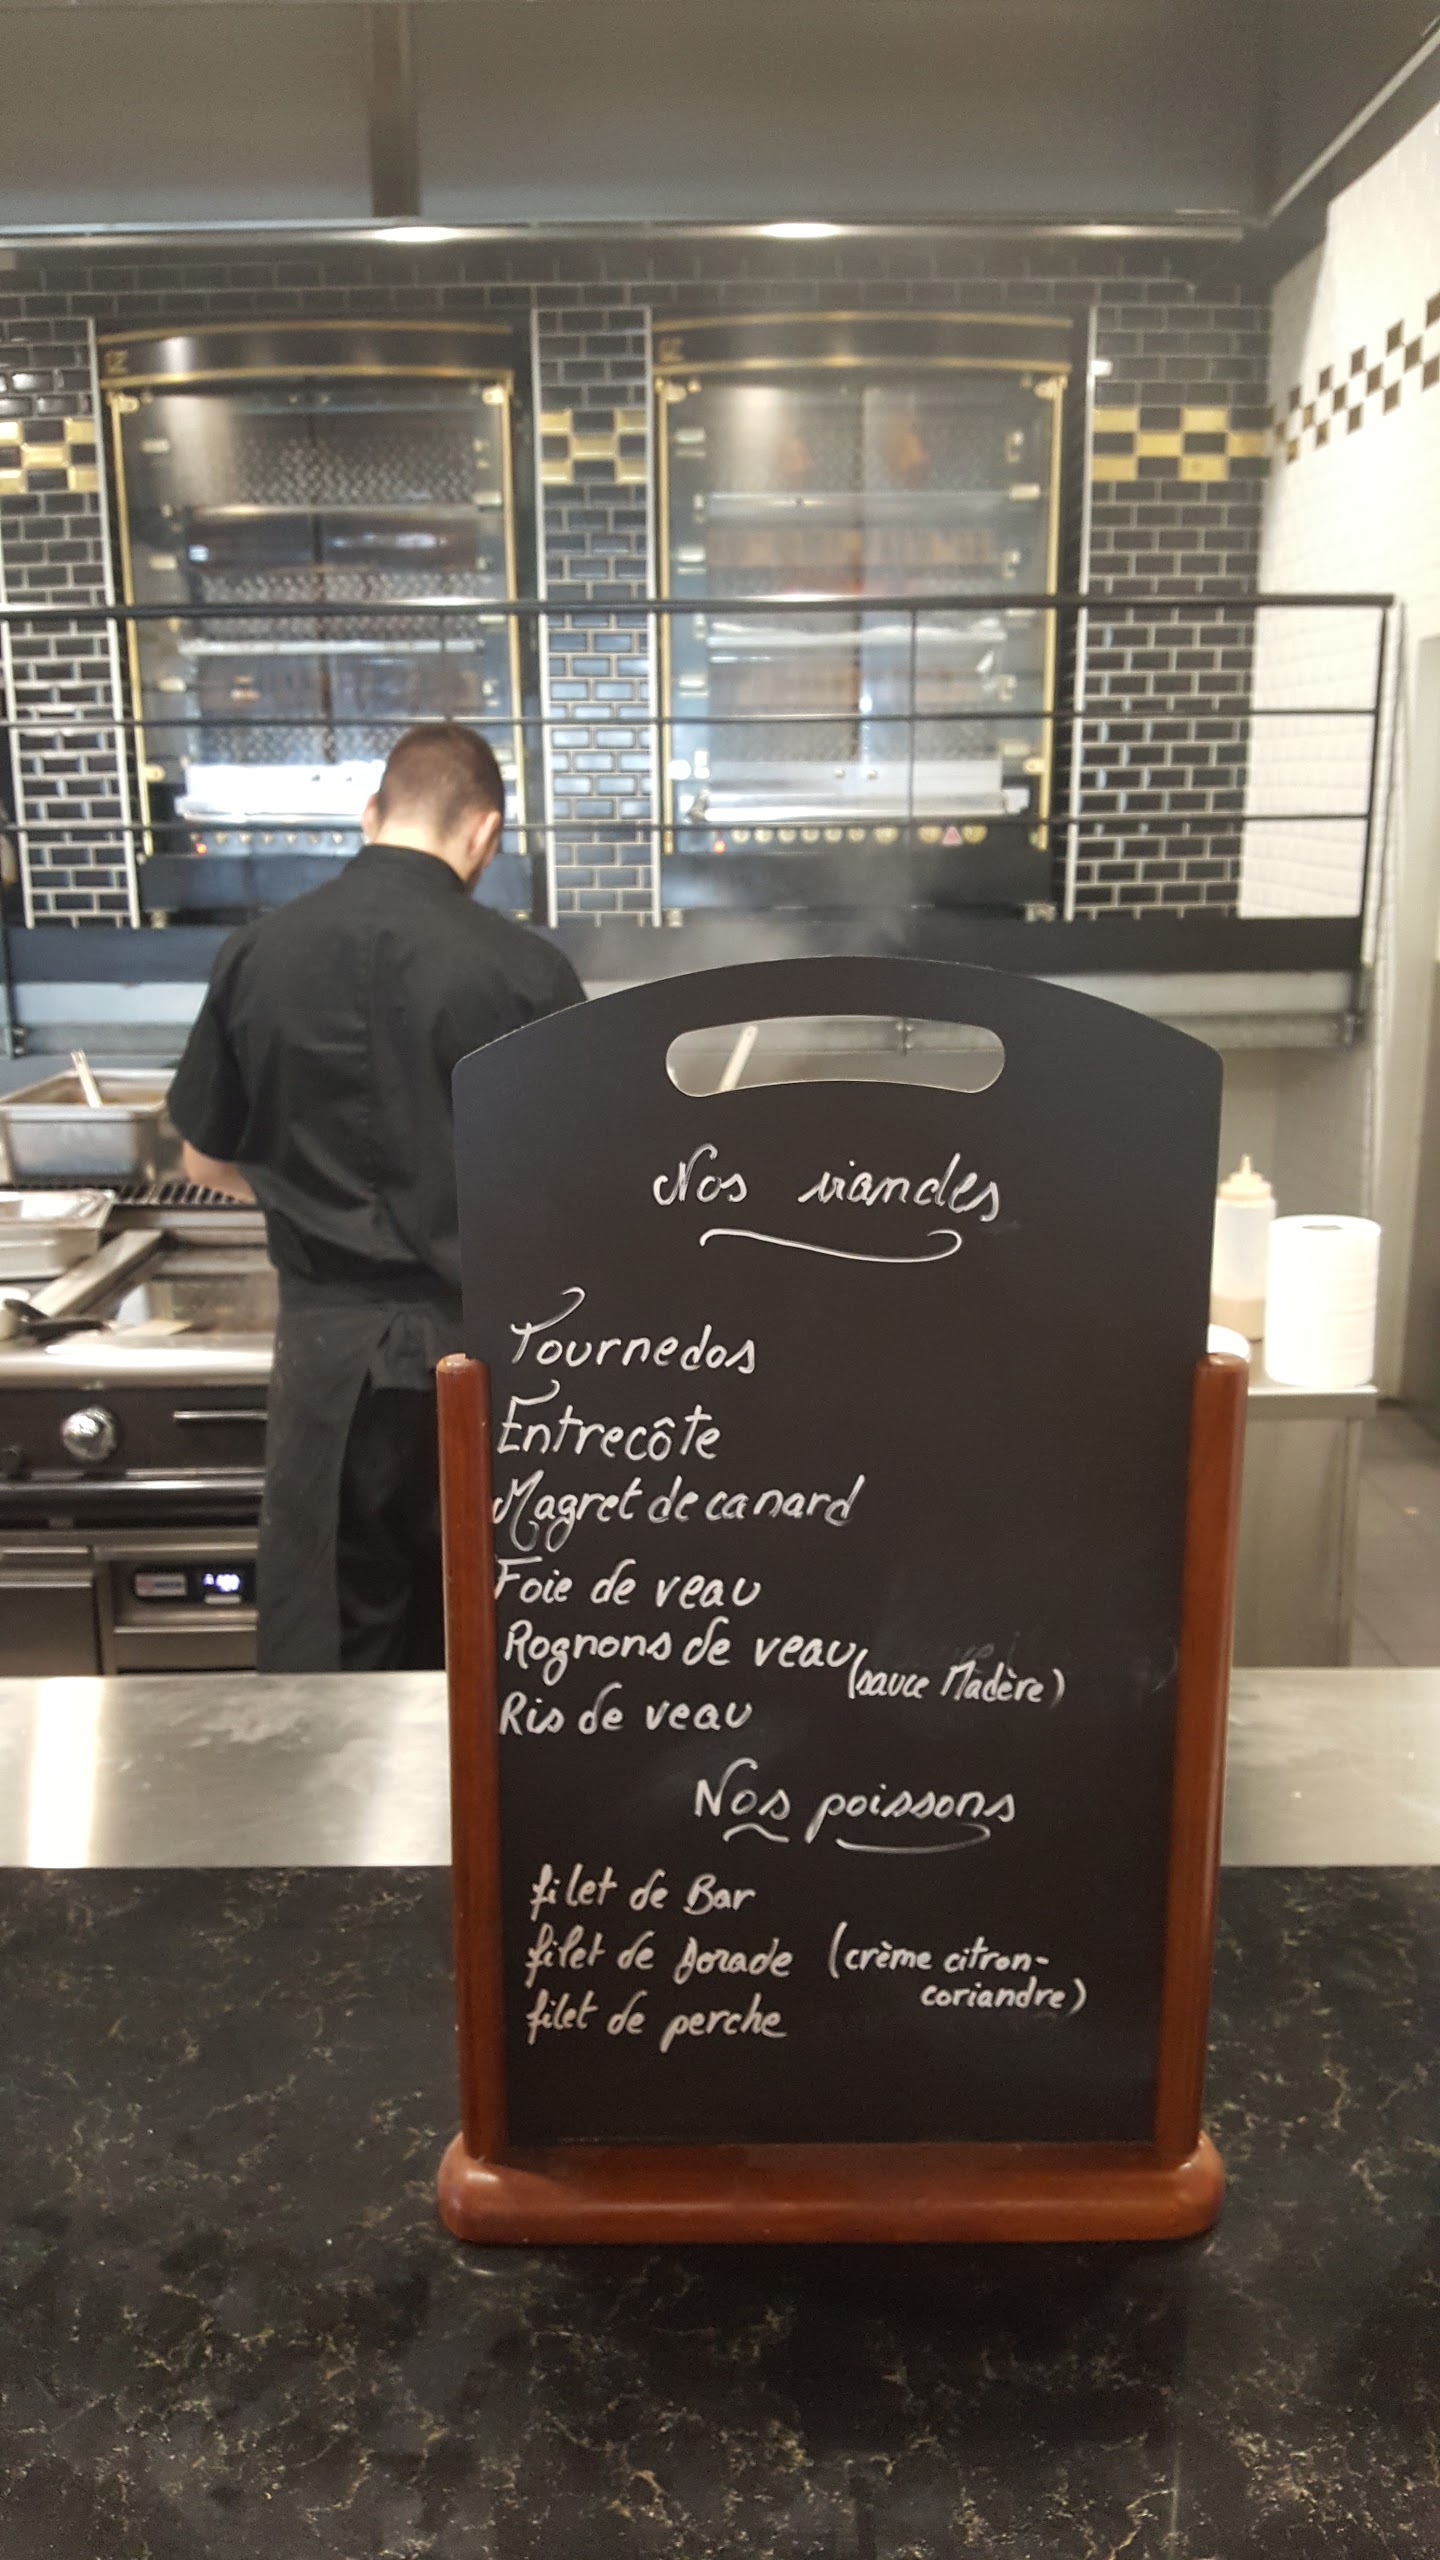 Nos viandes
Tournedos
Entrecôte
Magret de canard
Foie de veau
Rognons de veau (sauce Madère)
Ris de veau
Nos poissons
filet de Bar
filet de Dorade (crème citron-
coriandre)
filet de perche